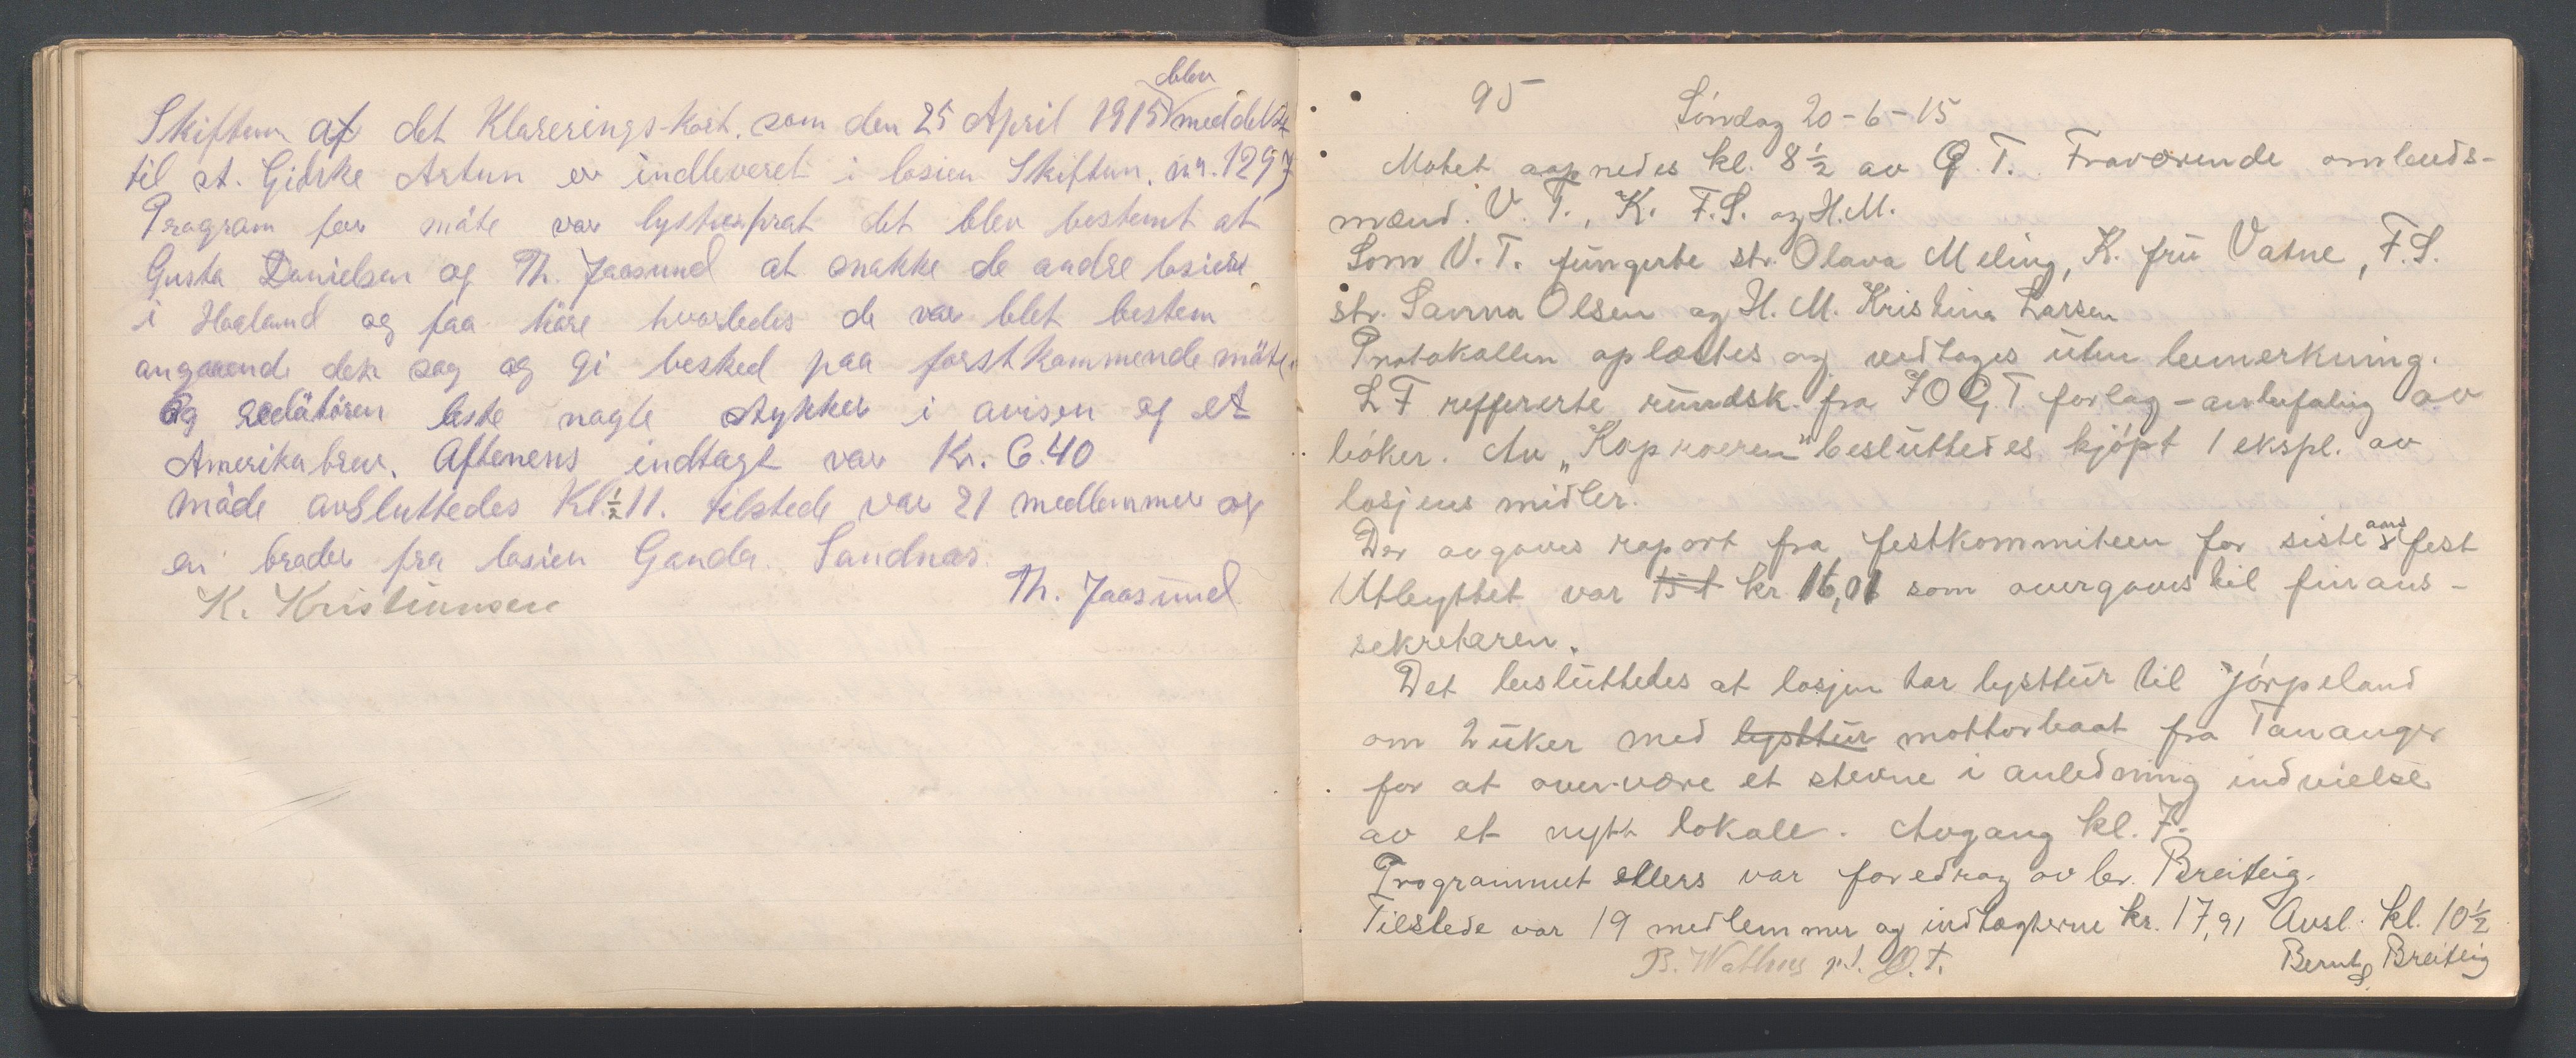 Skiftun af det Klarerings-Kort. som den 25 April 1915 blev meddelst
til st. Gidske Artun er indleveret i losien Skiftun. nr. 1297
Program for möte var lystenprat det blev bestemt at
Gusta Danielsen og Th. Jaasund at snakke de andre losiere
i Haaland og faa höre hvorledes de var blet bestem
angaaende den sag og gi besked paa förstkommende möte.
Og redätören leste nogle stykker i avisen og et
Amerika brev. Aftenens indtagt var Kr. 6.40
möde avsluttedes Kl. ½ 11. tilstede var 21 medlemmer og
en broder fra losien Ganda. Sandnas.
K. Kristiansen Th. Jaasund
95
Söndag 20-6-15
Motet aapnedes kl. 8½ av Q. T. Fraværende ombuds-
mænd. V. T., K. F.S. og H.M.
Som V. T. fungerte str. Olava Meling, K. fru Vatne, F.S.
str. Sanna Olsen og H. M. Kristina Larsen
Protokollen oplæstes og vedtoges uten bemerkning.
L F reffererte rundsk. fra IOGT forlag - anbefaling av
böker. Av „Kaproeren" besluttedes kjöpt 1 ekspl. av
losjens midler.
Der avgaves raport fra festkommiteen for siste aars fest
Utbyttet var kr 16,01 som overgaves til finans-
sekretæren.
Det besluttedes at losjen har lysttur til Jörpeland
om 2 uker med lysttur mottorbaat fra Tananger
for at overvære et stevne i anledning indvielse
av et nytt lokale. Avgang kl. 7.
Programmet ellers var foredrag av br. Breiteig.
Tilstede var 19 medlemmer og indtægterne kr. 17,91 Avsl. kl. 10½
B. Wathne p.t. Q. T. Bernt Breiteig
S.